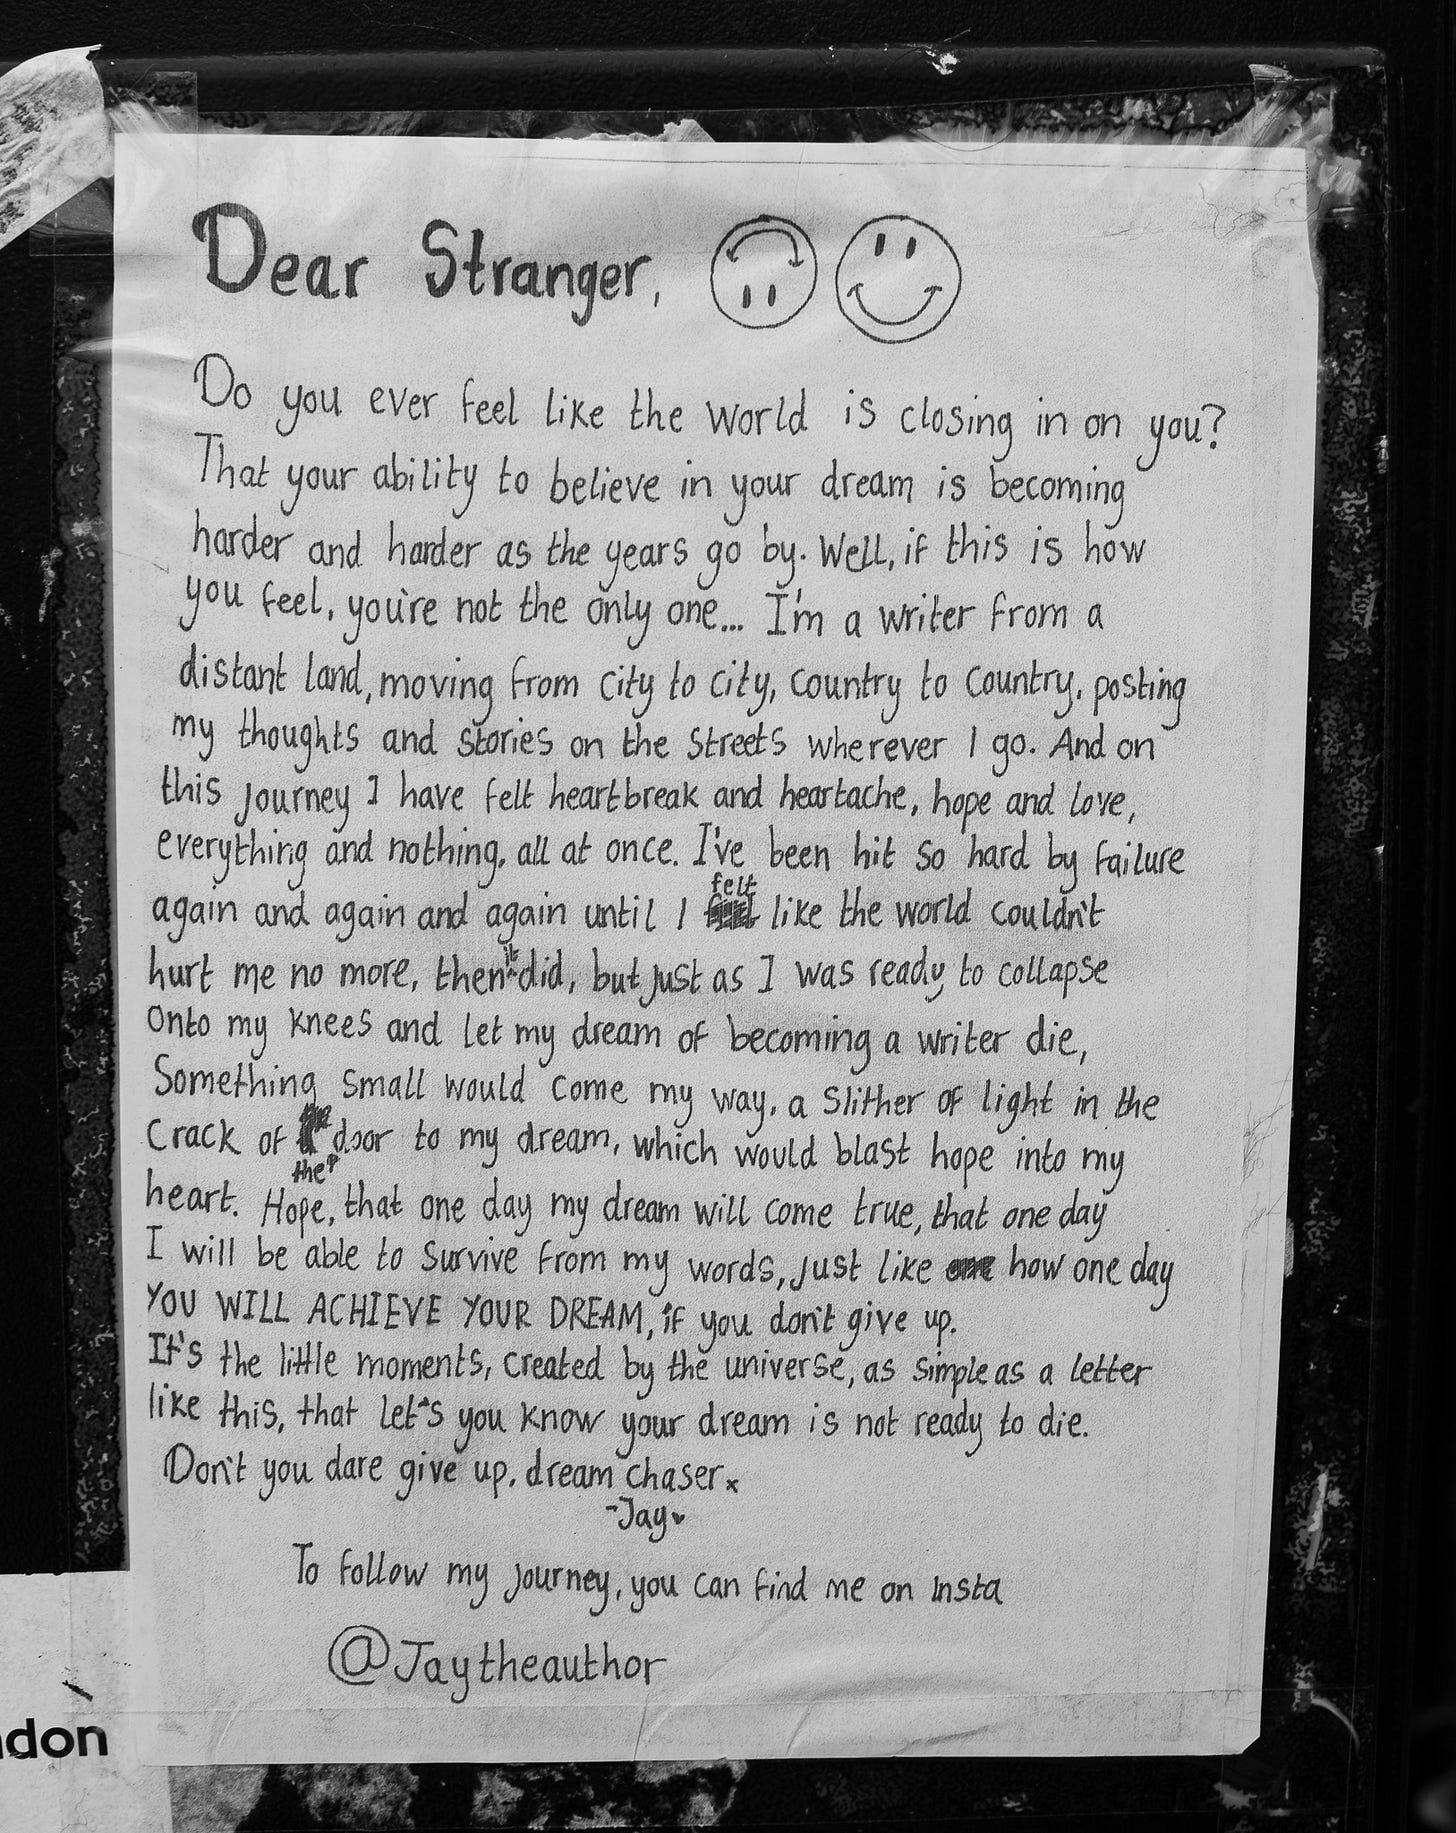 Dear Stranger,
Do you ever feel like the world is closing in on you?
That your ability to believe in your dream is becoming
harder and harder as the years go by. Well, if this is how
you feel, you're not the only one... I'm a writer from a
distant land, moving from city to city, country to country, posting
my thoughts and stories on the streets wherever I go. And on
this journey I have felt heartbreak and heartache, hope and love,
everything and nothing, all at once. I've been hit so hard by failure
again and again and again until I felt like the world couldn't
hurt me no more, then it did, but just as I was ready to collapse
onto my knees and let my dream of becoming a writer die,
Something small would come my way, a slither of light in the
crack of the door to my dream, which would blast hope into my
heart. Hope, that one day my dream will come true, that one day
I will be able to survive from my words, just like how one day
YOU WILL ACHIEVE YOUR DREAM, if you don't give up.
It's the little moments, created by the universe, as simple as a letter
like this, that let's you know your dream is not ready to die.
Don't you dare give up, dream chaser x
-Jay
To follow my journey, you can find me on Insta
@Jaytheauthor
don